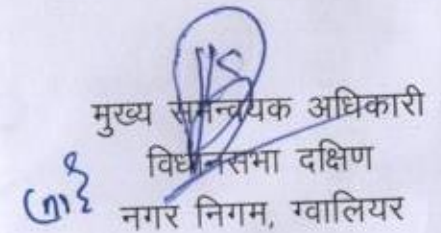 मुख्य समन्वयक अधिकारी
विधानसभा दक्षिण
नगर निगम, ग्वालियर